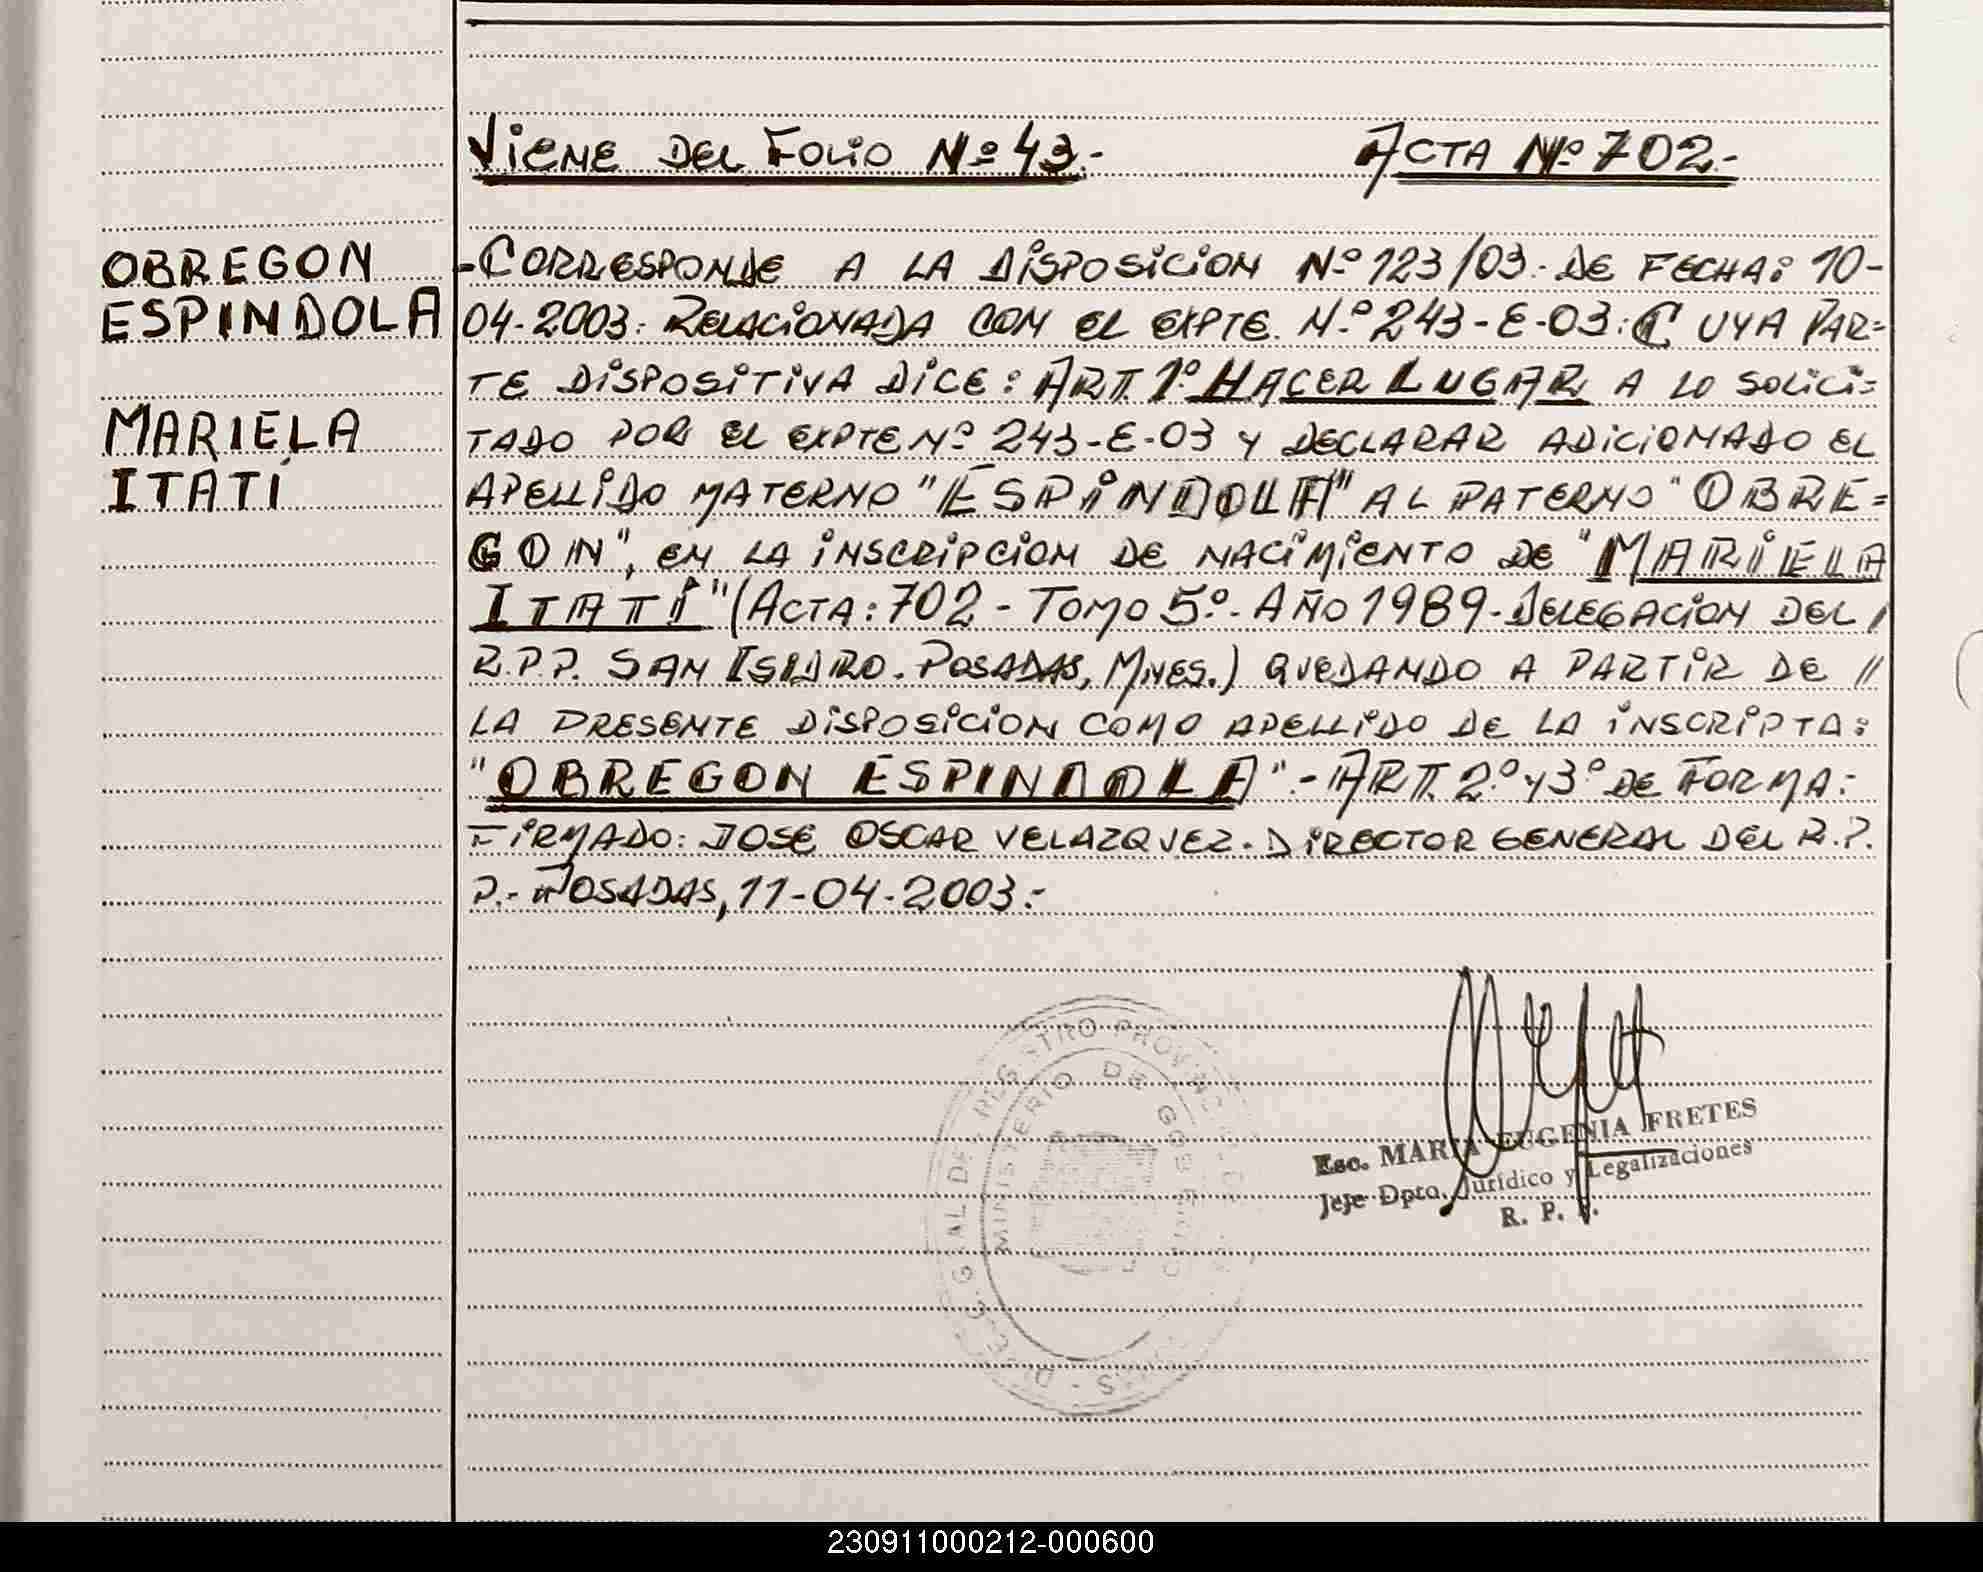 Viene del Folio Nº 43.- Acta Nº 702.-
OBREGON
ESPINDOLA
MARIELA
ITATÍ
-Corresponde a la Disposicion N.º 123/03.- de fecha: 10-
04-2003: Relacionada con el Expte. N.º 243-E-03: Cuya par-
te dispositiva dice: Art. 1º Hacer Lugar a lo solici-
tado por el expte Nº 243-E-03 y declarar adicionado el
apellido materno "ESPINDOLA" al paterno "OBRE-
GON", en la inscripcion de nacimiento de "MARIELA
ITATÍ" (Acta: 702 - Tomo 5º.- Año 1989 - Delegacion del /
R.P.P. San Isidro. Posadas, Mnes.) quedando a partir de //
la presente disposicion como apellido de la inscripta:
"OBREGON ESPINDOLA".- Art. 2º y 3º de Forma:
Firmado: Jose Oscar Velazquez. Director General del R.P.
P.- Posadas, 11-04-2003:-
REGISTRO PROVINC
MINISTERIO DE GOBIERNO
Esc. MARIA EUGENIA FRETES
Jefe Dpto. Jurídico y Legalizaciones
R. P. P.
230911000212-000600